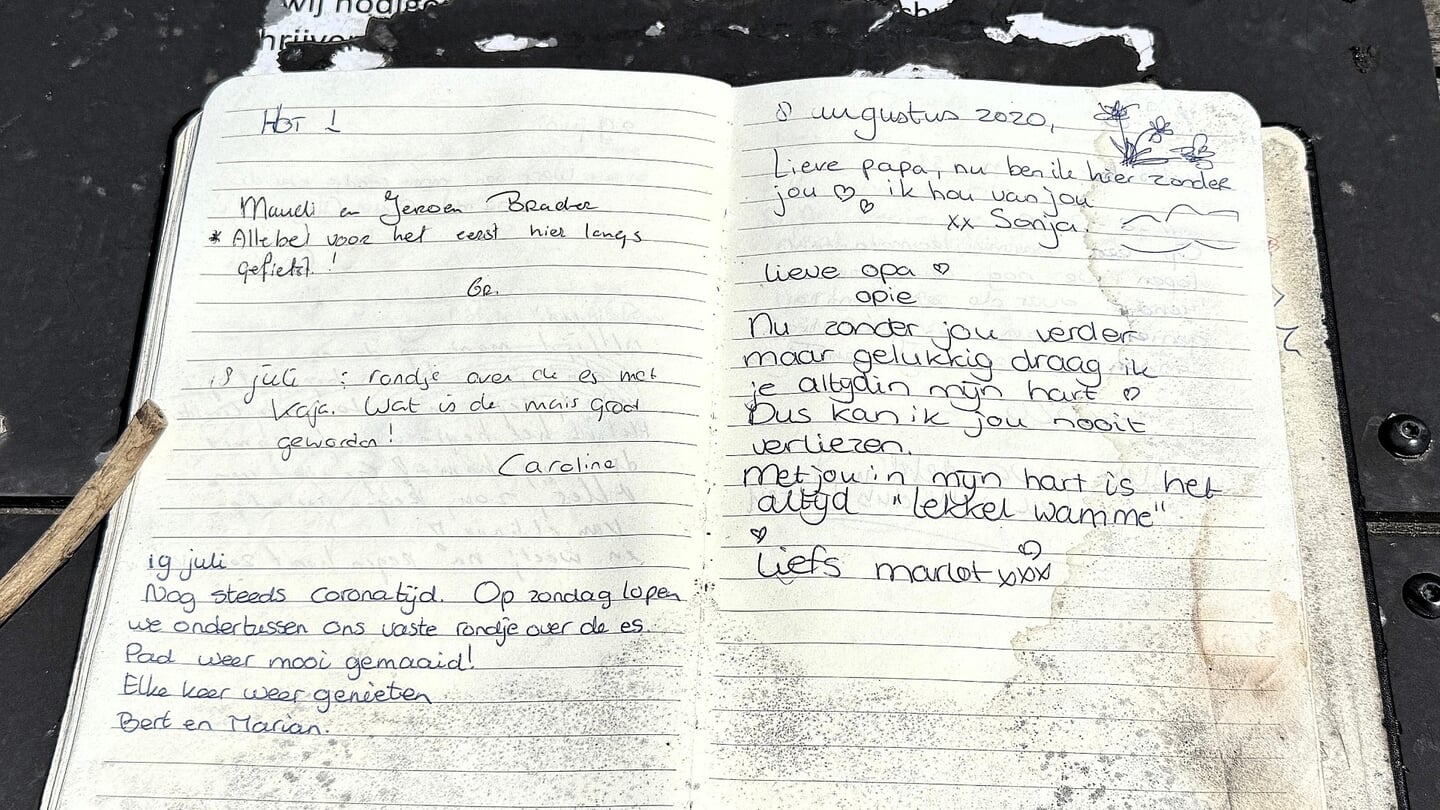 wij nodige
hrijven
Hot !
en Jeroen
* Allebei voor het eerst hier langs
gefietst !
Gr.
18 juli : rondje over de es met
Kaja. Wat is de mais groot
geworden!
Caroline
19 juli
Nog steeds coronatijd. Op zondag lopen
we ondertussen ons vaste rondje over de es.
Pad weer mooi gemaaid!
Elke keer weer genieten
Bert en Marian.
8 augustus 2020,
Lieve papa, nu ben ik hier zonder
jou ♡ ik hou van jou
♡
xx Sonja.
lieve opa ♡
opie
Nu zonder jou verder
maar gelukkig draag ik
je altijd in mijn hart ♡
Dus kan ik jou nooit
verliezen.
Met jou in mijn hart is het
altijd "lekkel wamme"
♡
Liefs marlot xxx